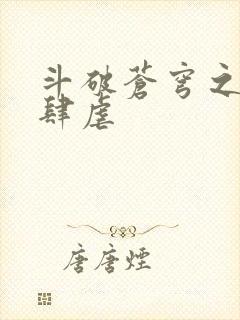 斗破苍穹之
肆虐
唐唐煙